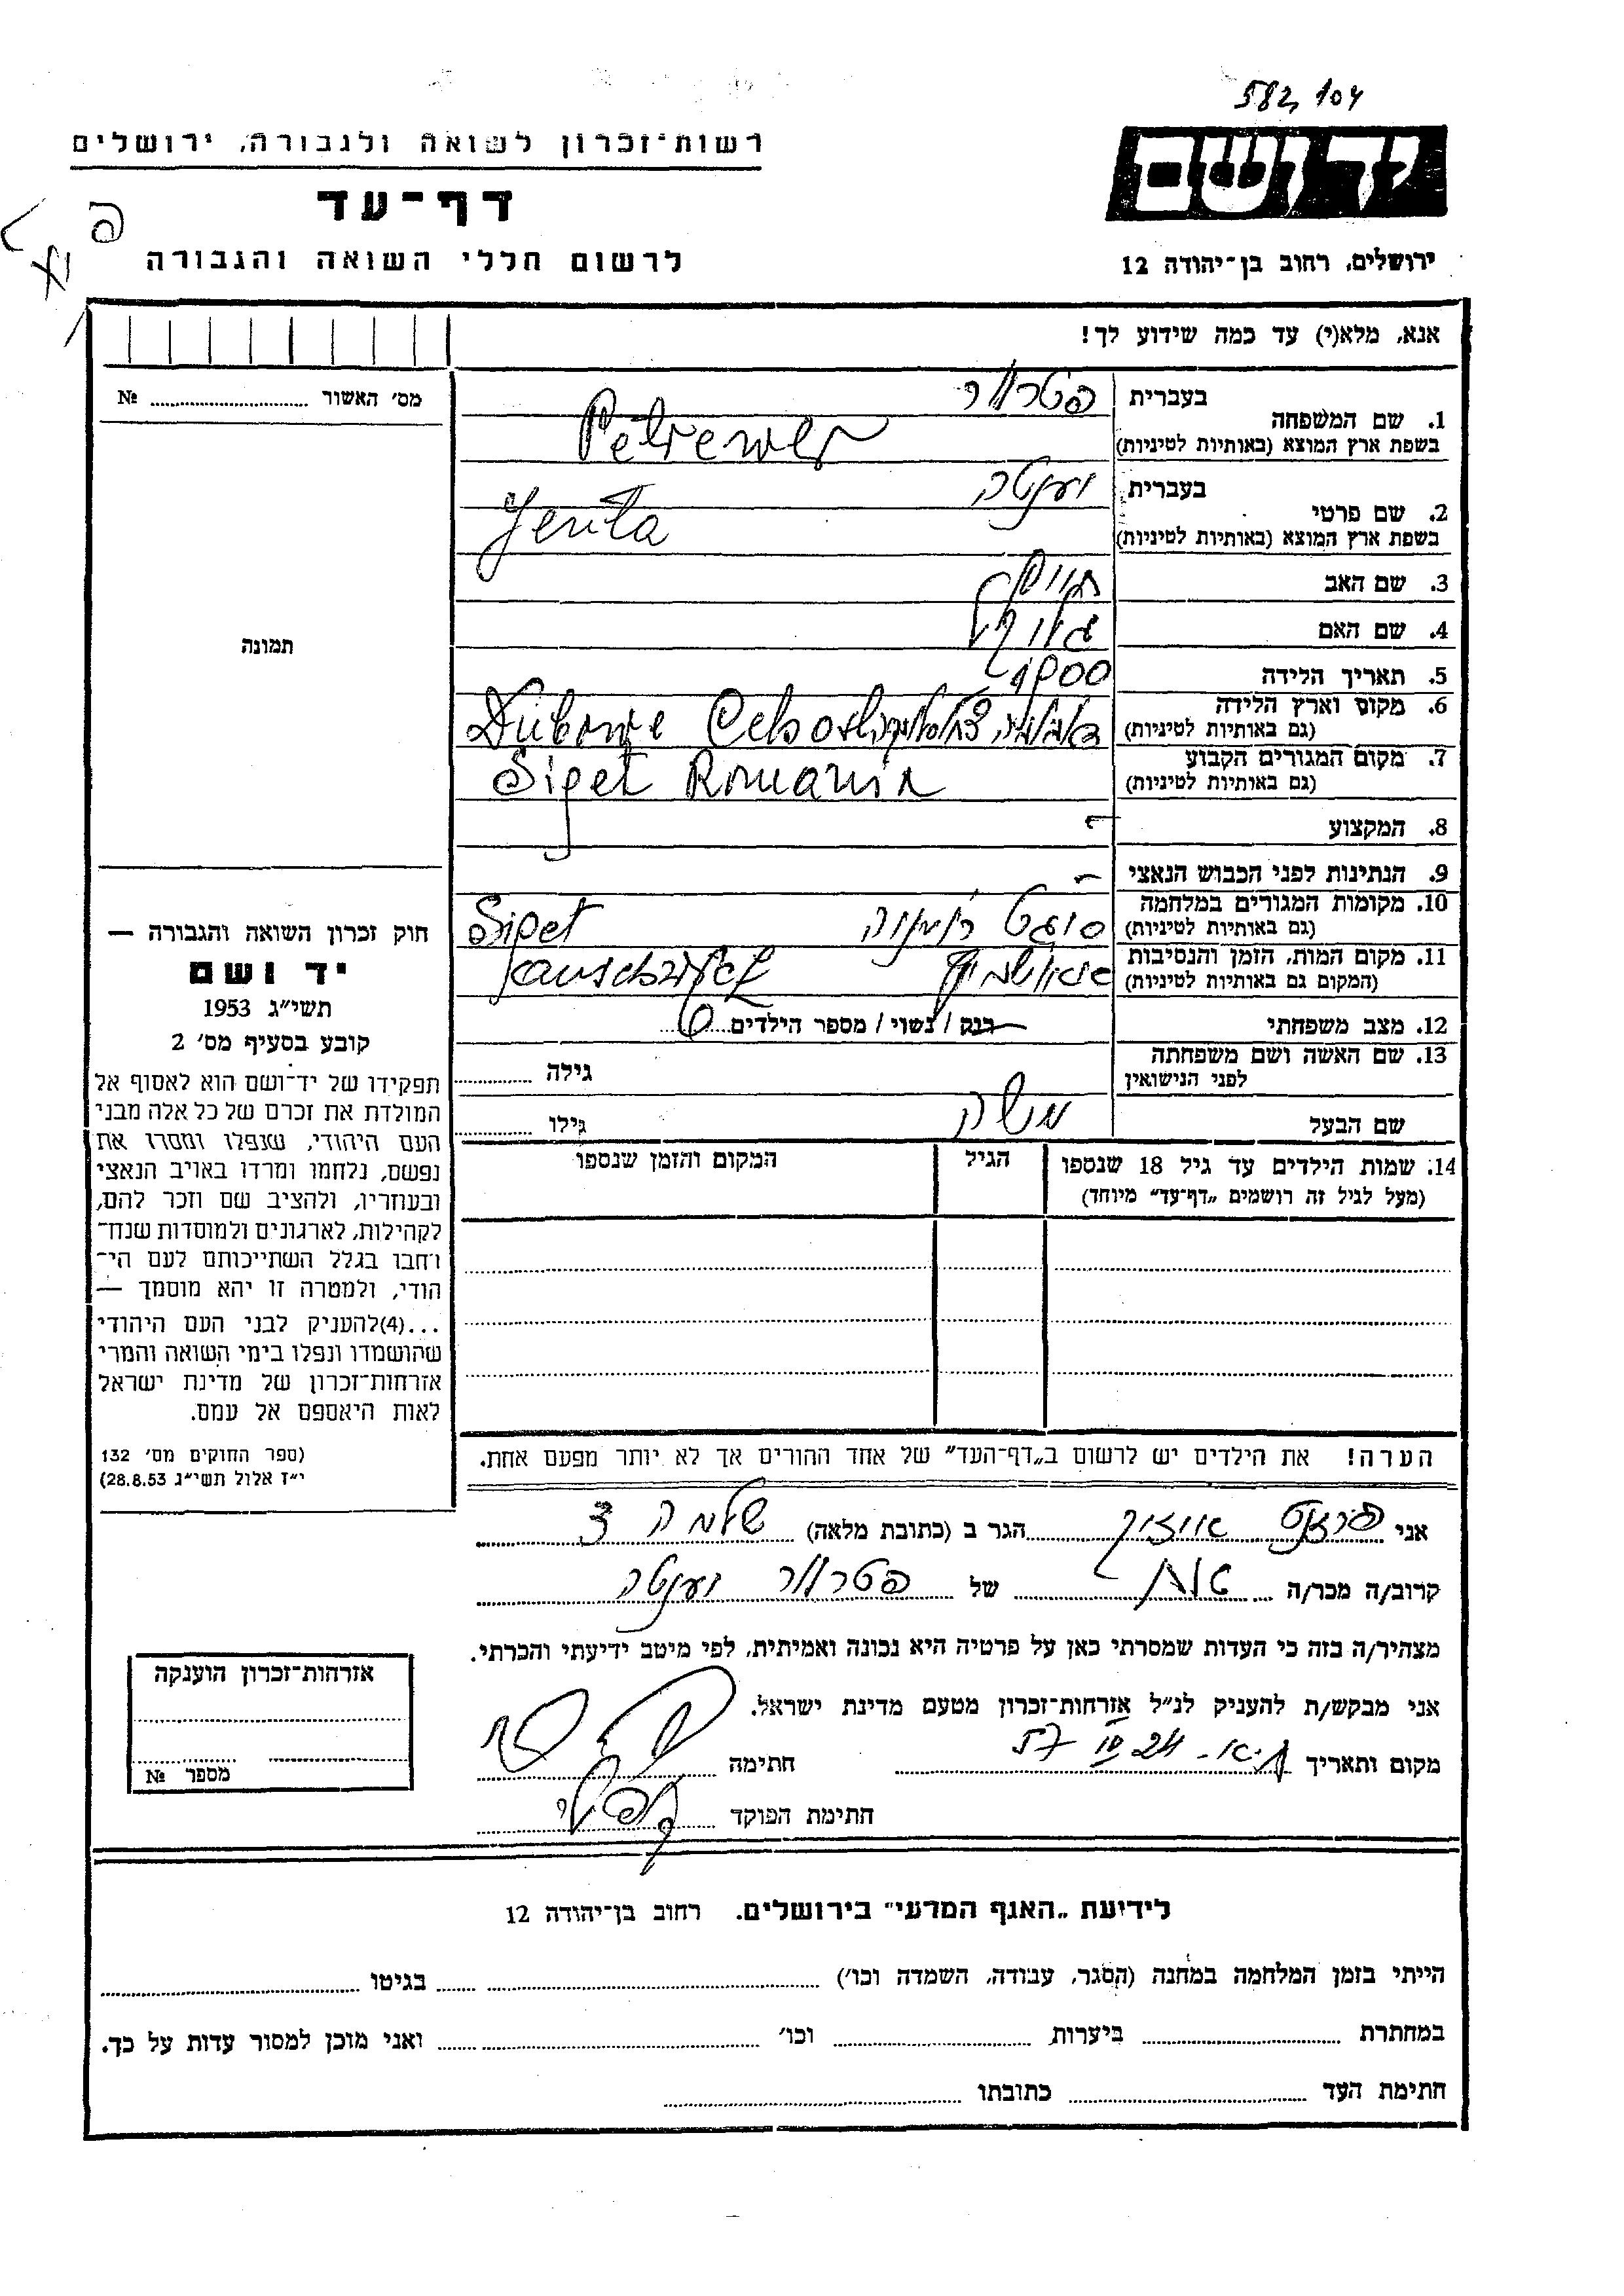 582,104
יד ושם
רשות־זכרון לשואה ולגבורה, ירושלים
דף־עד
לרשום חללי השואה והגבורה
ירושלים, רחוב בן־יהודה 12
פ
אנא, מלא(י) עד כמה שידוע לך!
מס׳ האשור № 
תמונה
1. שם המשפחה
בעברית
בשפת ארץ המוצא (באותיות לטיניות)
Petrewer
2. שם פרטי
בעברית יענטה
בשפת ארץ המוצא (באותיות לטיניות)
Jenta
3. שם האב
4. שם האם
5. תאריך הלידה 1900
6. מקום וארץ הלידה
(גם באותיות לטיניות)
Dubowe
7. מקום המגורים הקבוע
(גם באותיות לטיניות)
Siget Romania
8. המקצוע -
9. הנתינות לפני הכבוש הנאצי -
10. מקומות המגורים במלחמה
(גם באותיות לטיניות)
סיגט רומניה Siget
11. מקום המות, הזמן והנסיבות
(המקום גם באותיות לטיניות)
12. מצב משפחתי רנק / נשוי / מספר הילדים 6
13. שם האשה ושם משפחתה
לפני הנישואין
גילה
שם הבעל משה גילו
14. שמות הילדים עד גיל 18 שנספו
(מעל לגיל זה רושמים „דף־עד” מיוחד)
הגיל
המקום והזמן שנספו
הערה! את הילדים יש לרשום ב„דף־העד” של אחד ההורים אך לא יותר מפעם אחת.
חוק זכרון השואה והגבורה —
יד ושם
תשי״ג 1953
קובע בסעיף מס׳ 2
תפקידו של יד־ושם הוא לאסוף אל
המולדת את זכרם של כל אלה מבני
העם היהודי, שנפלו ומסרו את
נפשם, נלחמו ומרדו באויב הנאצי
ובעוזריו, ולהציב שם וזכר להם,
לקהילות, לארגונים ולמוסדות שנח־
רחבו בגלל השתייכותם לעם הי־
הודי, ולמטרה זו יהא מוסמך —
...(4)להעניק לבני העם היהודי
שהושמדו ונפלו בימי השואה והמרי
אזרחות־זכרון של מדינת ישראל
לאות היאספם אל עמם.
(ספר החוקים מס׳ 132
י״ז אלול תשי״ג 28.8.53)
אני אייזיק הגר ב (כתובת מלאה) שלמה 3
קרוב/ה מכר/ה של יענטה
מצהיר/ה בזה כי העדות שמסרתי כאן על פרטיה היא נכונה ואמיתית, לפי מיטב ידיעתי והכרתי.
אני מבקש/ת להעניק לנ״ל אזרחות־זכרון מטעם מדינת ישראל.
מקום ותאריך ת״א - 24 57 חתימה
חתימת הפוקד
אזרחות־זכרון הוענקה
מספר №
לידיעת „האגף המדעי” בירושלים. רחוב בן־יהודה 12
הייתי בזמן המלחמה במחנה (הסגר, עבודה, השמדה וכו׳) בגיטו
במחתרת ביערות וכו׳ ואני מוכן למסור עדות על כך.
חתימת העד כתובתו